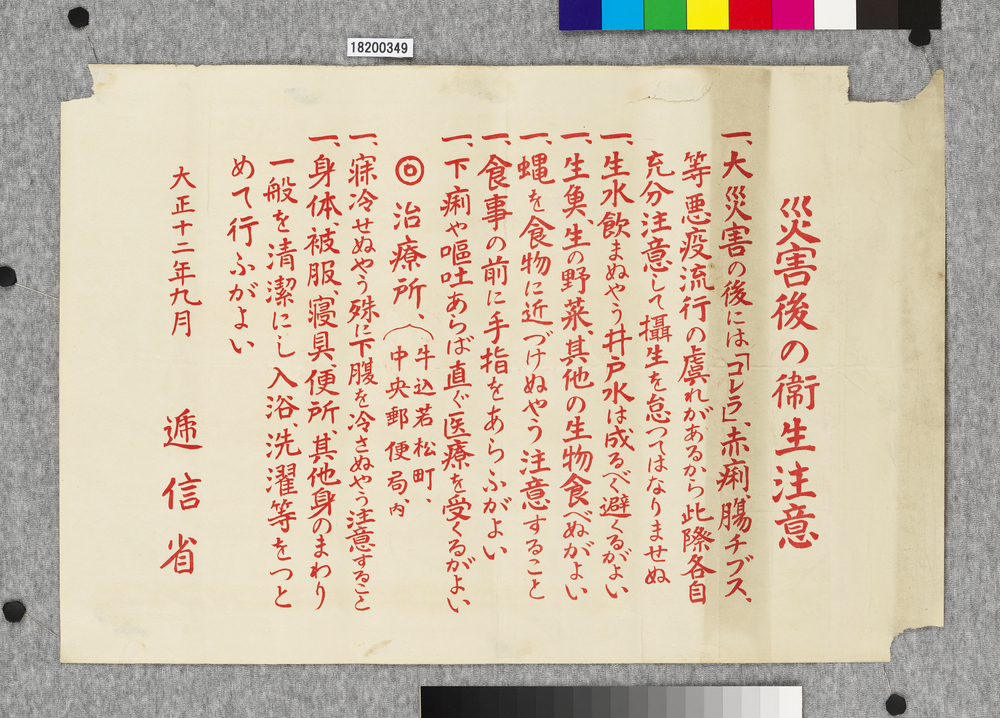 18200349
災害後の衛生注意
一、大災害の後には「コレラ」、赤痢、腸チブス、
等悪疫流行の虞れがあるから此際各自
充分注意して攝生を怠つてはなりませぬ
一、生水飲まぬやう井戸水は成るべく避くるがよい
一、生魚、生の野菜、其他の生物食べぬがよい
一、蝿を食物に近づけぬやう注意すること
一、食事の前に手指をあらふがよい
一、下痢や嘔吐あらば直ぐ医療を受くるがよい
◎治療所、(牛込若松町、
中央郵便局、内
一、寐冷せぬやう殊に下腹を冷さぬやう注意すること
一、身体、被服、寝具、便所、其他身のまわり
一般を清潔にし入浴、洗濯等をつと
めて行ふがよい
大正十二年九月 逓信省